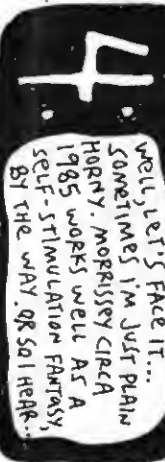 4
WELL, LET'S FACE IT...
SOMETIMES I'M JUST PLAIN
HORNY. MORRISSEY CIRCA
1985 WORKS WELL AS A
SELF-STIMULATION FANTASY,
BY THE WAY. OR SO I HEAR...